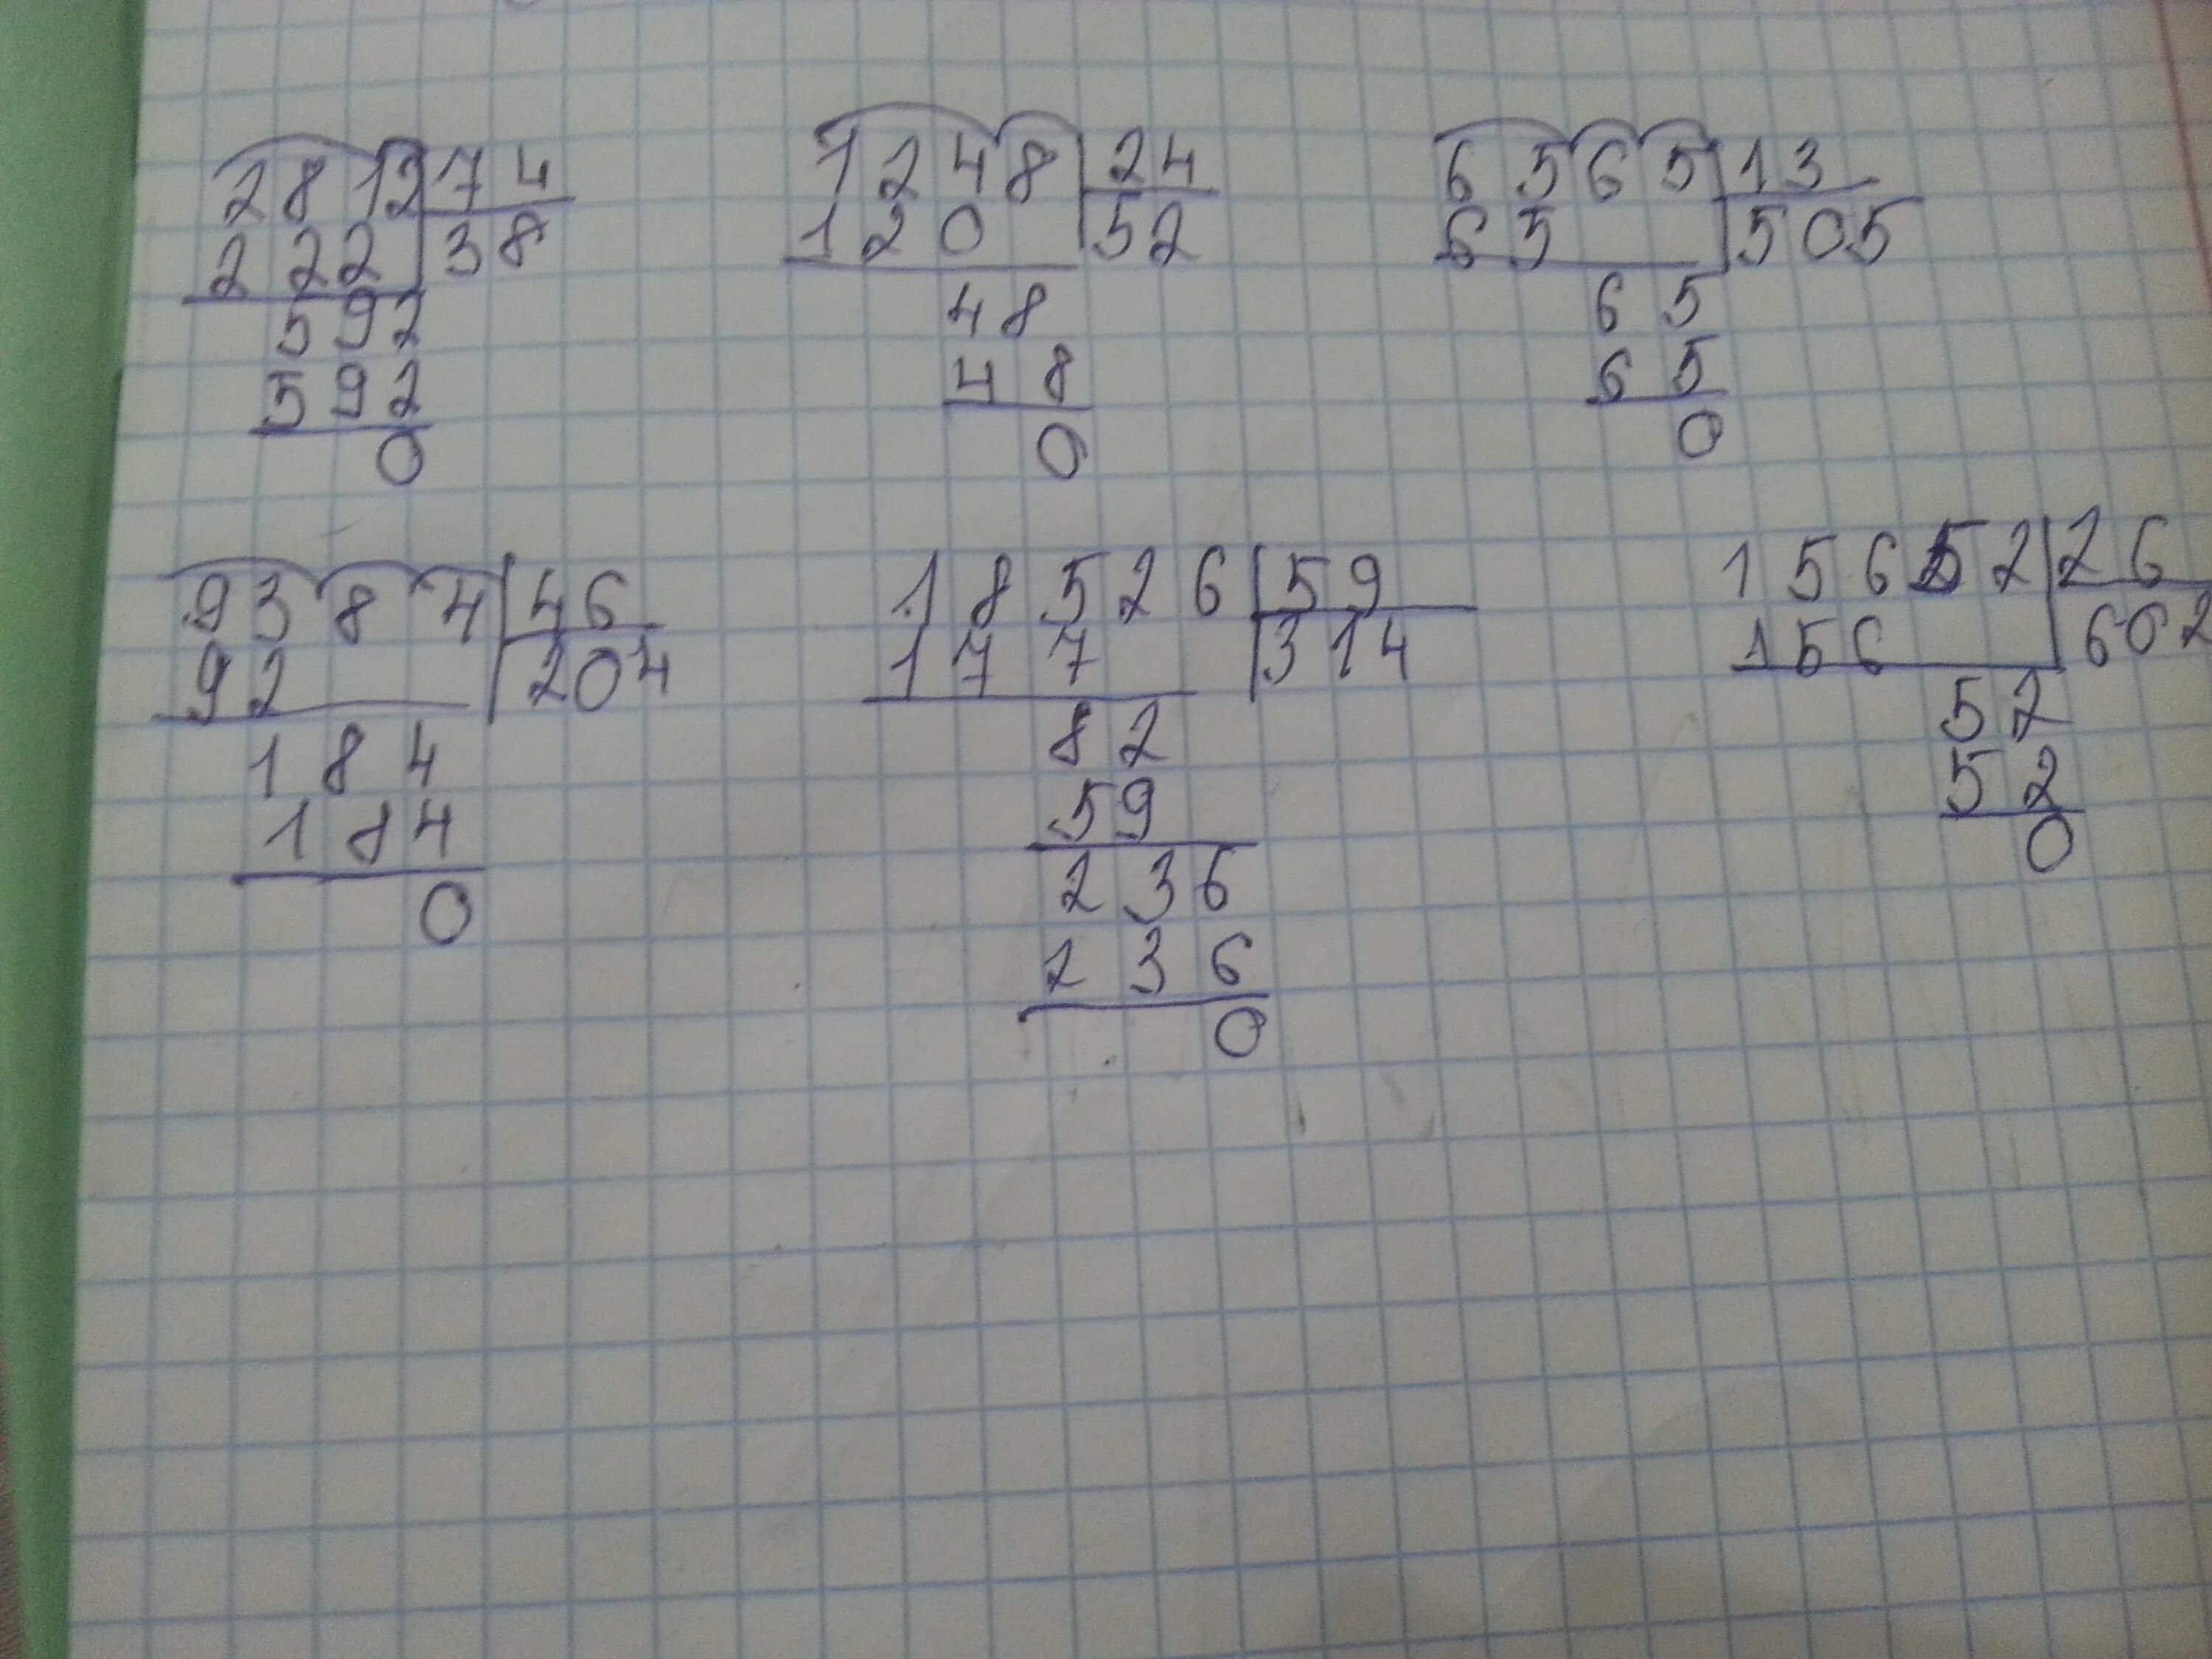 2812 74
222 38
592
592
0
1248 24
120 52
48
48
0
6565 13
65 505
65
65
0
9384 46
92 204
184
184
0
18526 59
177 314
82
59
236
236
0
15652 26
156 602
52
52
0